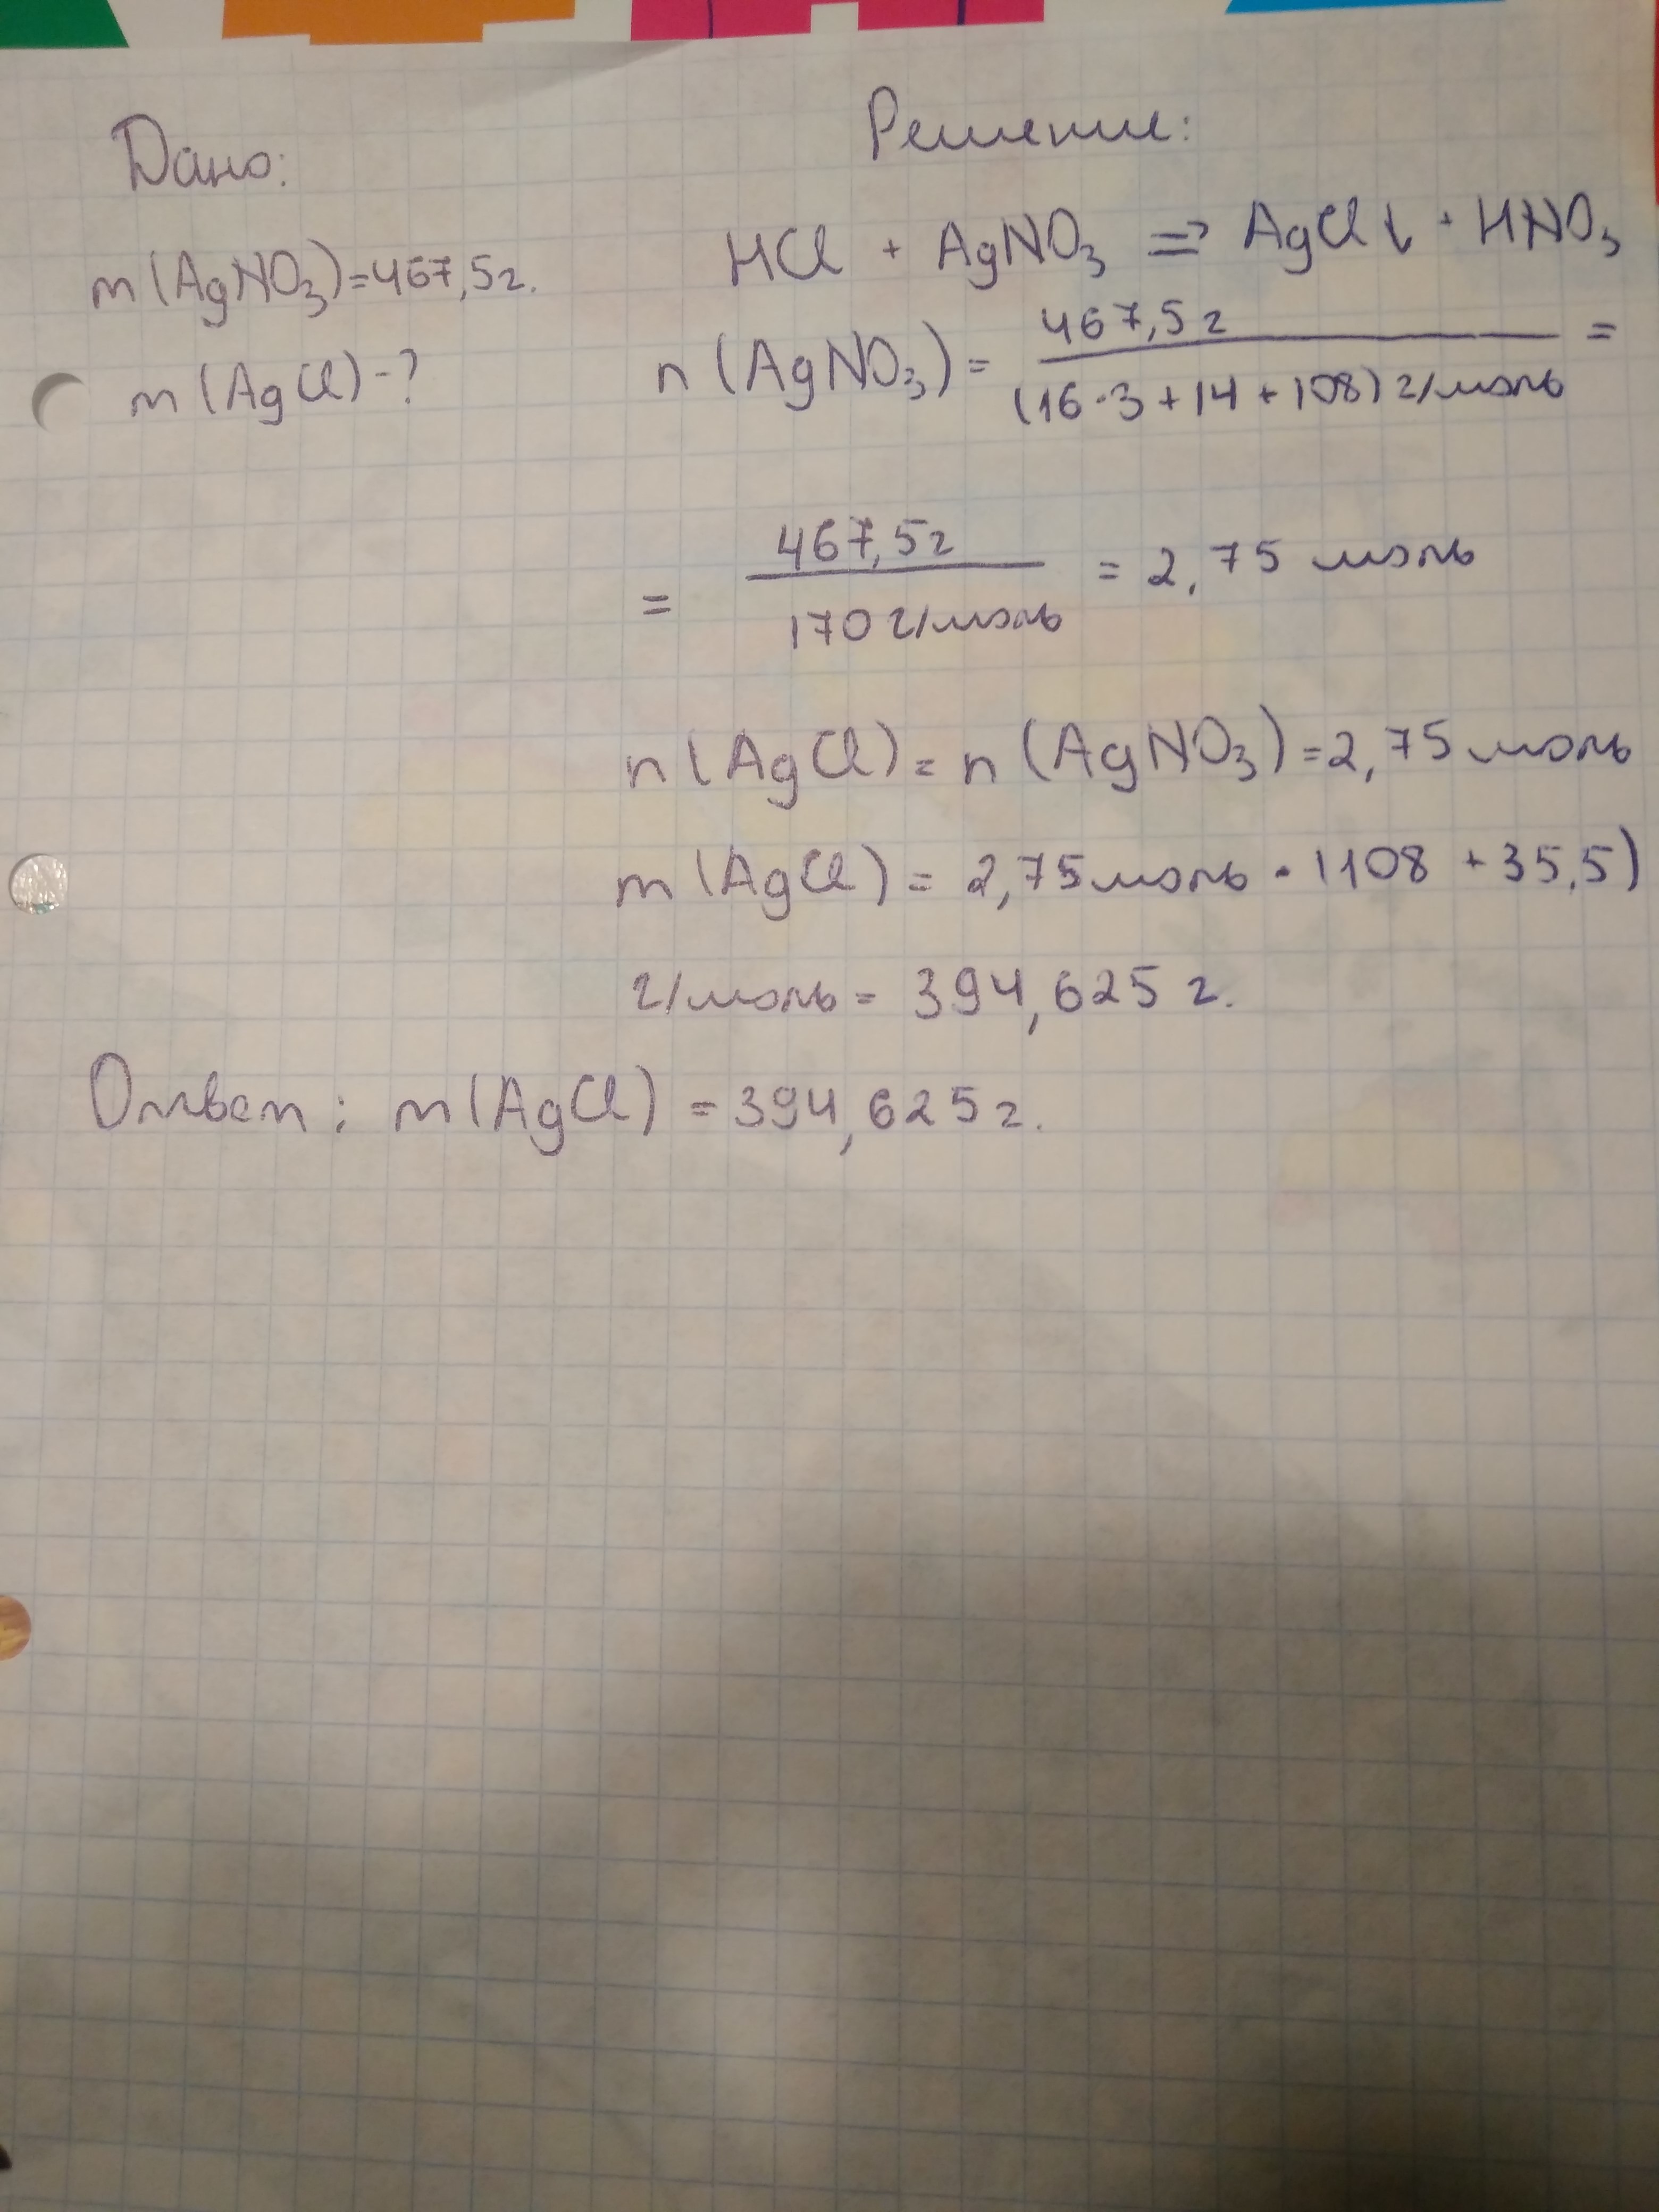 Дано:
m(AgNO₃)=467,5г.
m(AgCl)-?
Решение:
HCl + AgNO₃ => AgCl↓ + HNO₃
n(AgNO₃) = 467,5г / (16·3+14+108) г/моль =
= 467,5г / 170 г/моль = 2,75 моль
n(AgCl) = n(AgNO₃) = 2,75 моль
m(AgCl) = 2,75 моль · (108 + 35,5)
г/моль = 394,625 г.
Ответ: m(AgCl) = 394,625г.